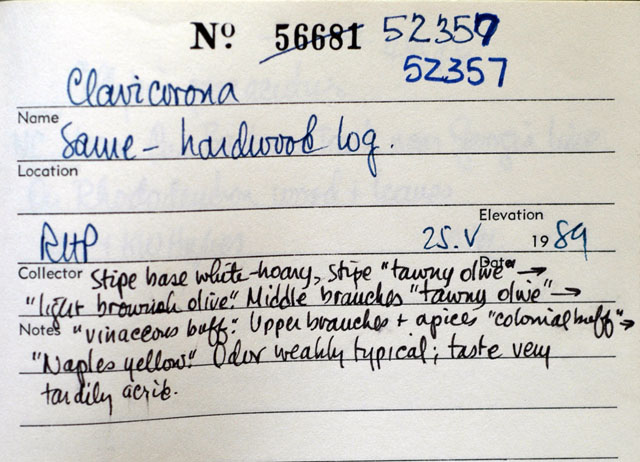 Nº 56681 52357
52357
Clavicorona
Name
Same - hardwood log.
Location
Elevation
RHP 25.V 1989
Collector Date
Stipe base white-hoary, stipe "tawny olive" →
"light brownish olive" Middle branches "tawny olive" →
Notes "vinaceous buff". Upper branches + apices "colonial buff" →
"Naples yellow". Odor weakly typical; taste very
tardily acrid.